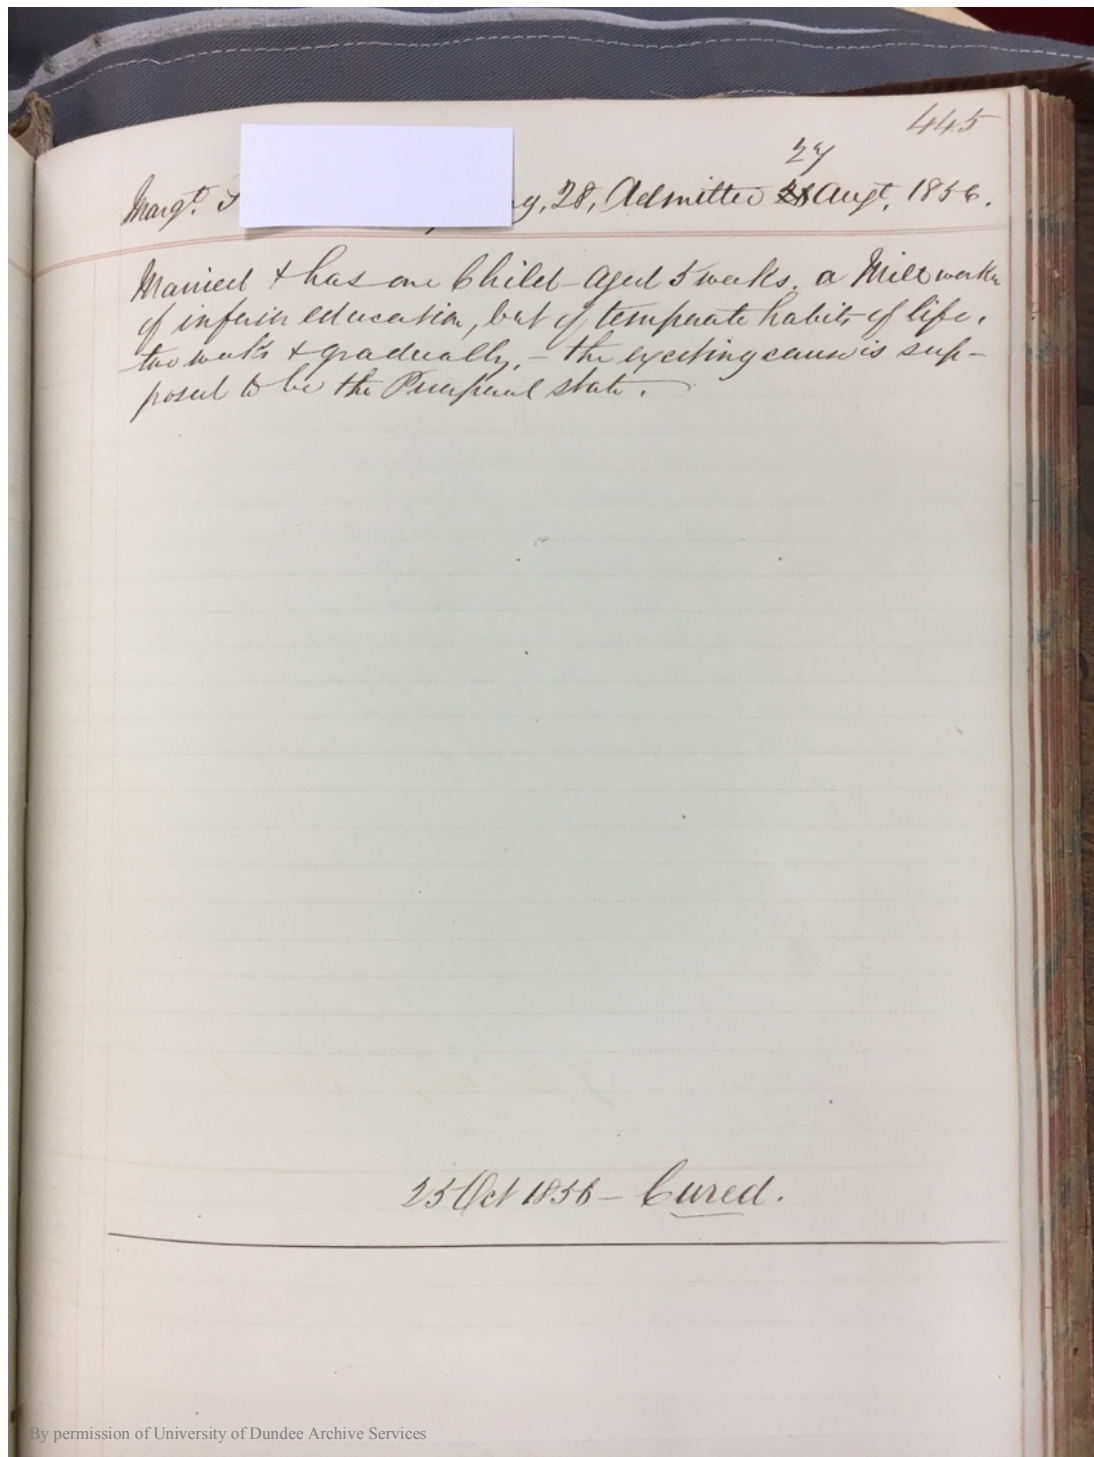 445
27
Margt. S y, 28, Admitted 28 Augt, 1856.
Married & has one Child aged 5 weeks. a Mill worker
of inferior education, but of temperate habits of life.
two weeks & gradually, – the exciting cause is sup-
posed to be the Puerperal state.
25 Oct 1856 – Cured.
By permission of University of Dundee Archive Services